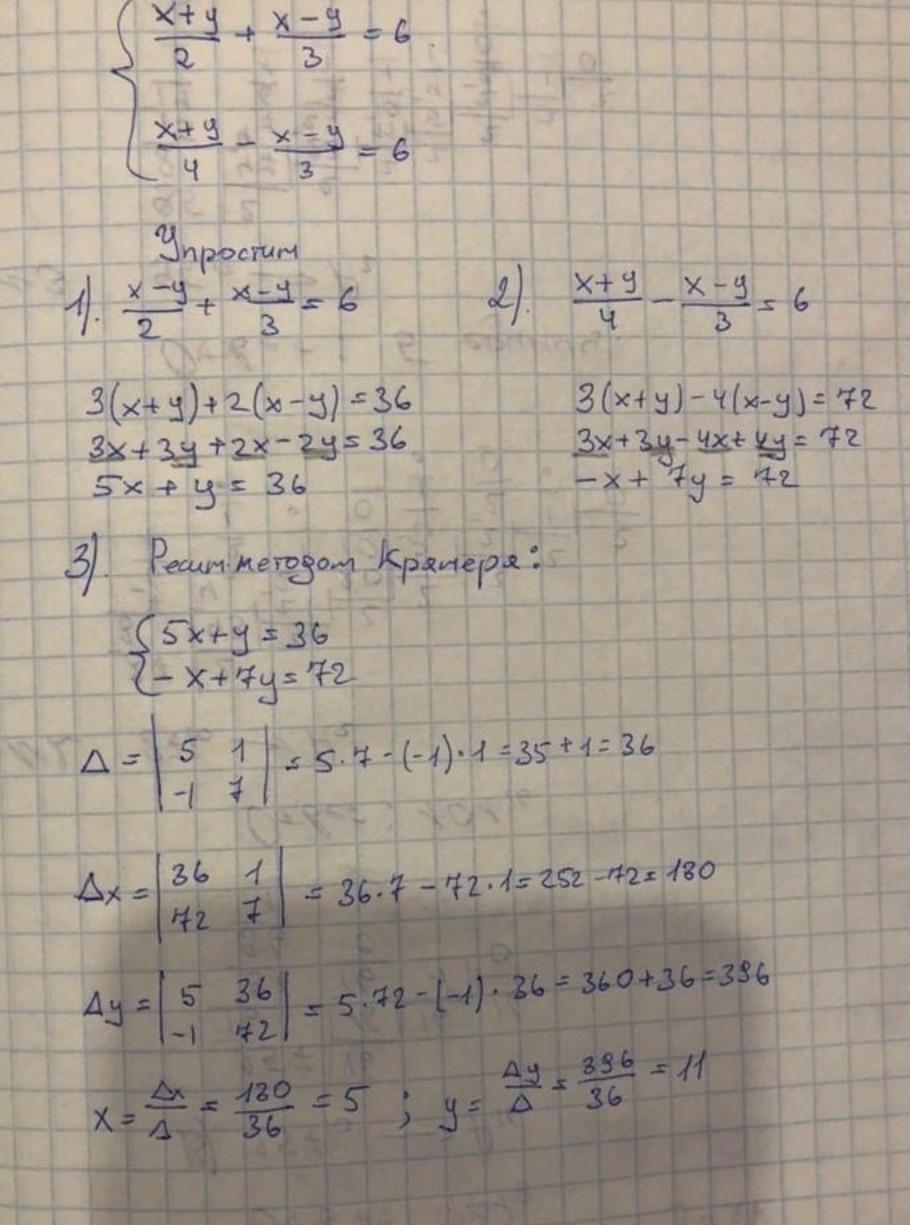 { (x+y)/2 + (x-y)/3 = 6
(x+y)/4 - (x-y)/3 = 6
Упростим
1). (x-y)/2 + (x-y)/3 = 6
3(x+y)+2(x-y)=36
3x+3y+2x-2y=36
5x+y=36
2). (x+y)/4 - (x-y)/3 = 6
3(x+y)-4(x-y)=72
3x+3y-4x+4y=72
-x+7y=72
3). Решим методом Крамера:
{ 5x+y=36
-x+7y=72
Δ = | 5 1 | = 5·7-(-1)·1=35+1=36
| -1 7 |
Δx = | 36 1 | = 36·7-72·1=252-72=180
| 72 7 |
Δy = | 5 36 | = 5·72-(-1)·36=360+36=396
| -1 72 |
x = Δx/Δ = 180/36 = 5 ; y = Δy/Δ = 396/36 = 11